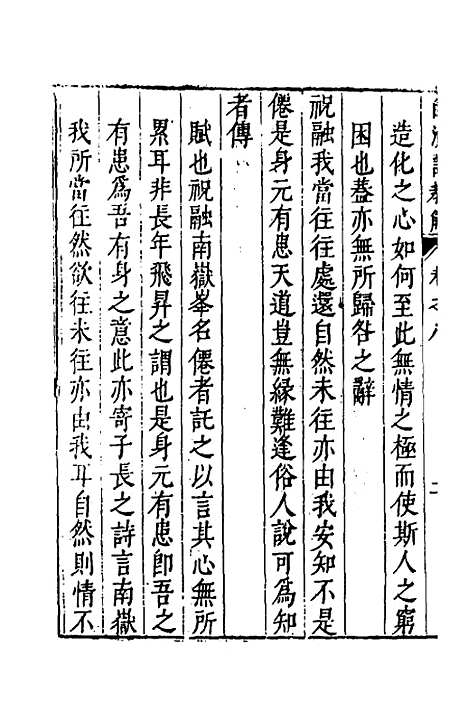 造化之心如何至此無情之極而使斯人之窮
困也葢亦無所歸咎之辭
祝融我當往往處還自然未往亦由我安知不是
僊是身元有患天道豈無緣難逢俗人說可為知
者傳
賦也祝融南嶽峯名僊者託之以言其心無所
累耳非長年飛昇之謂也是身元有患即吾之
有患為吾有身之意此亦寄子長之詩言南嶽
我所當往然欲往未往亦由我耳自然則情不